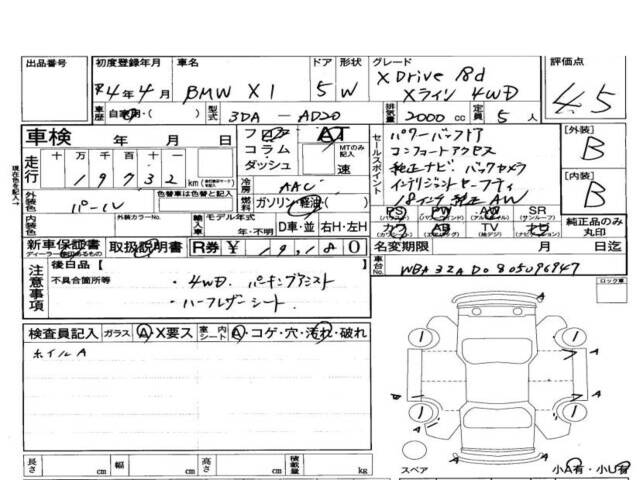 出品番号 初度登録年月 車名 ドア 形状 グレード 評価点
R4年4月 BMW X1 5 W XDrive 18d
Xライン 4WD
4.5
車歴 自家用・( ) 型式 3DA-AD20 排気量 2000 cc 定員 5人
車検 年 月 日 フロア AT セールスポイント パワーバックドア [外装]
コラム MTのみ記入 コンフォートアクセス B
走行 十万千百十一 ダッシュ 速 純正ナビ バックカメラ
19732 km 冷房 AAC インテリジェントセーフティ [内装]
外装色 パール 燃料 ガソリン・軽油・( ) 18インチ純正AW B
内装色 外装カラーNo. 輸入車 モデル年式 D車・並 右H・左H PS PW AW SR
年・不明 カワ AB TV ナビ 純正品のみ丸印
新車保証書 取扱説明書 R券 ¥ 19,180 名変期限 月 日迄
車台No. WBA32AD0805096947
注意事項 後日品【 】
不具合箇所等 ・4WD. パーキングアシスト
・ハーフレザーシート.
ロック車
検査員記入 ガラス A X要ス 室内シート A・コゲ・穴・汚れ・破れ
ホイルA
長さ cm 幅 cm 高さ cm 積載量 kg
スペア 小A有・小U有